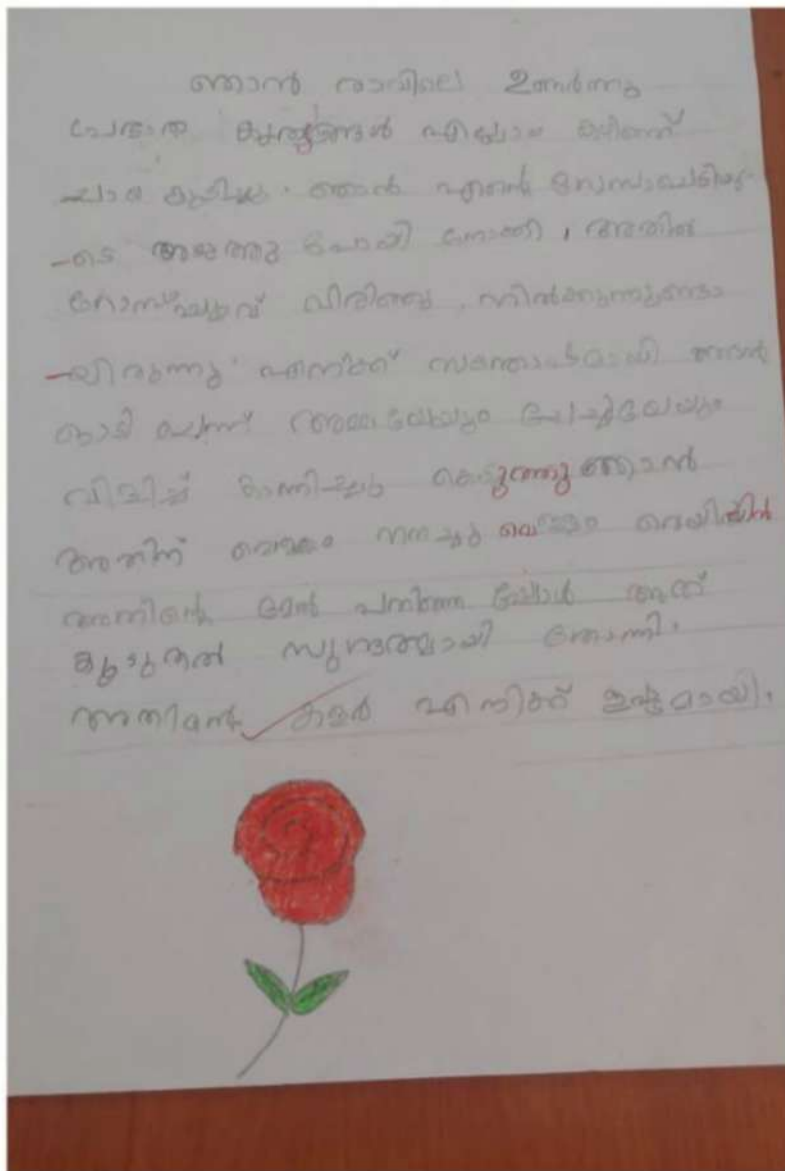 ഞാൻ രാവിലെ ഉണർന്നു
പ്രഭാത കൃത്യങ്ങൾ എല്ലാം കഴിഞ്ഞ്
ചായ കുടിച്ചു. ഞാൻ എന്റെ റോസാചെടിയു-
-ടെ അടുത്തു പോയി നോക്കി, അതിൽ
റോസാപ്പൂവ് വിരിഞ്ഞു നിൽക്കുന്നുണ്ടാ
-യിരുന്നു. എനിക്ക് സന്തോഷമായി ഞാൻ
ഓടി ചെന്ന് അമ്മയേയും ചേച്ചിയേയും
വിളിച്ച് കാണിച്ചു കൊടുത്തു ഞാൻ
അതിന് വെള്ളം നനച്ചു
അതിന്റെ മേൽ അത്
കൂടുതൽ സുന്ദരമായി തോന്നി.
അതിന്റെ കളർ എനിക്ക് ഇഷ്ടമായി.